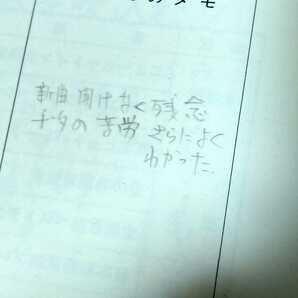 のメモ
新曲聞けなく残念
ナタの苦労さらによく
わかった.